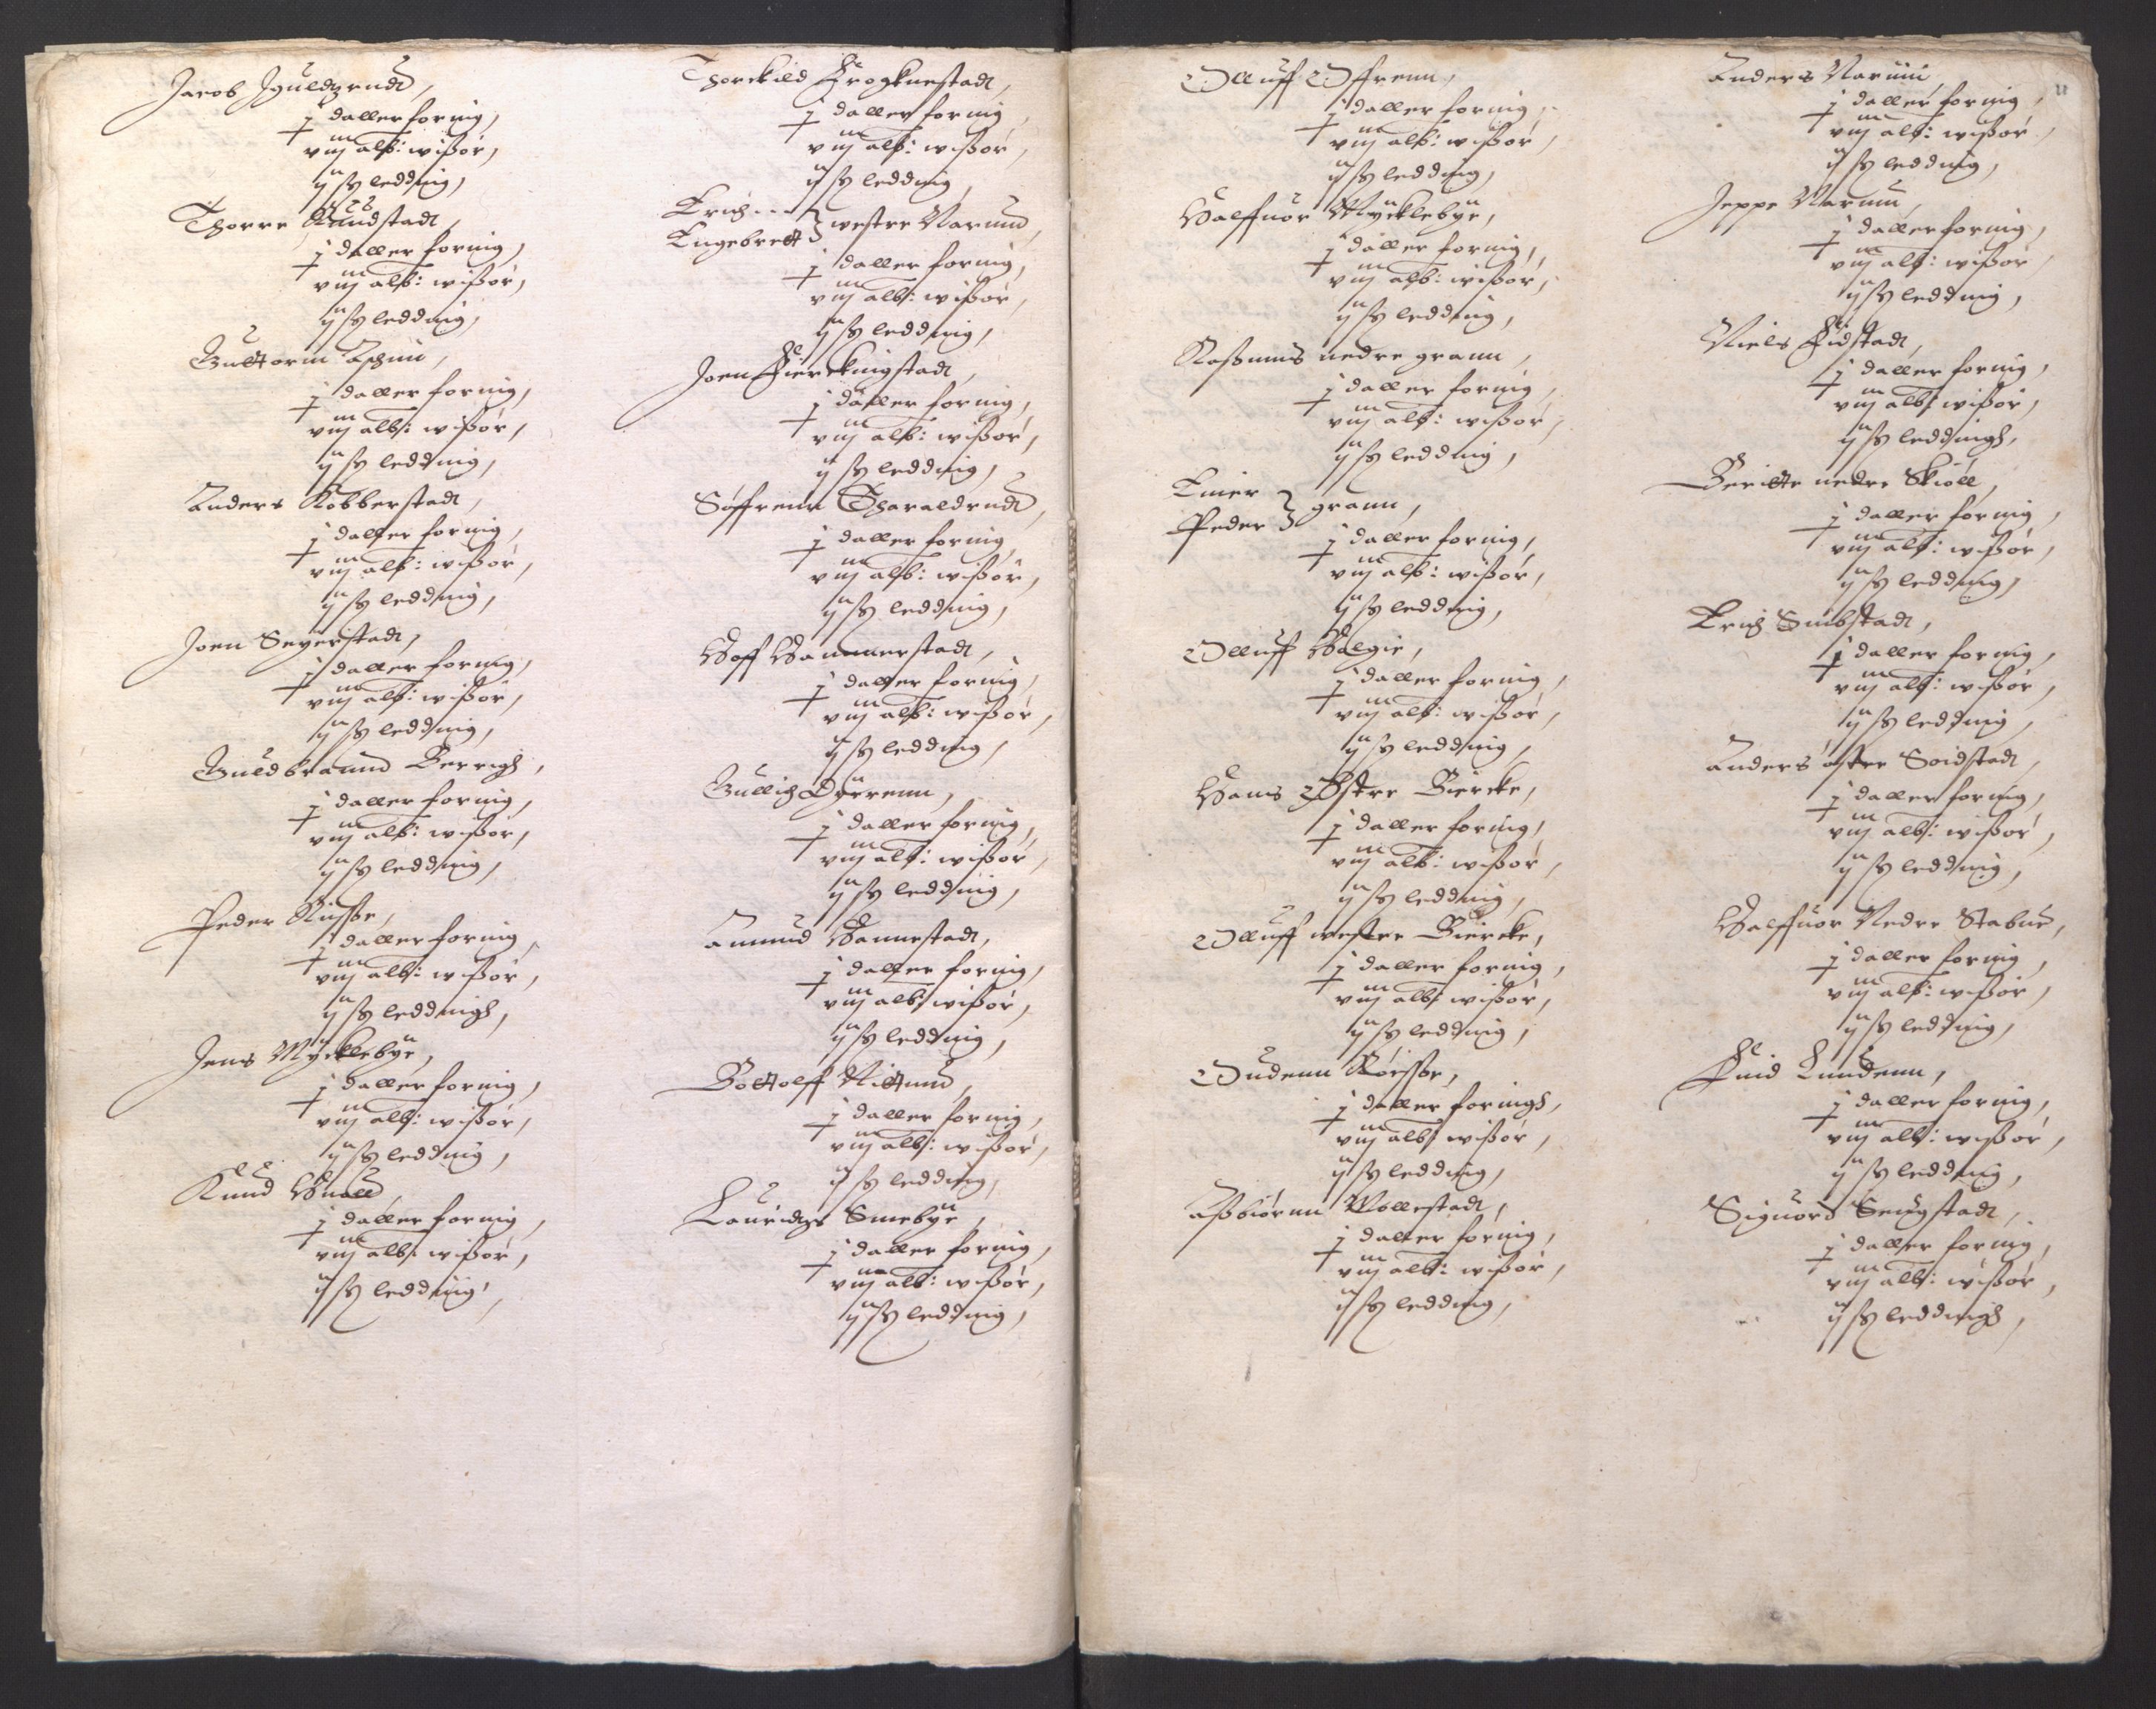 Jacob Jguldzrudt,
j daller foring,
viij alb: wißør,
ij ß ledding,
Thorre Rundstadt,
j daller foring,
viij alb: wißør,
ij ß ledding,
Guttorm Aschim,
j daller foring,
viij alb: wißør,
ij ß ledding,
Anders Kobberstadt,
j daller foring,
viij alb: wißør,
ij ß ledding,
Joen Seyerstadt,
j daller foring,
viij alb: wißør,
ij ß ledding,
Guldbrannd Berrigh,
j daller foring,
viij alb: wißør,
ij ß ledding,
Peder Riisse,
j daller foring,
viij alb: wißør,
ij ß leddingh,
Jens Mÿcklebye,
j daller foring,
viij alb: wißør,
ij ß ledding,
Knud Huall,
j daller foring,
viij alb: wißør,
ij ß ledding,
Thorckild Frogknestadt,
j daller foring,
viij alb: wißør,
ij ß ledding,
Erich
Engebrett westre Narund,
j daller foring,
viij alb: wißør,
ij ß ledding,
Joen Fierckingstadt,
j daller foring,
viij alb: wißør,
ij ß ledding,
Søffrenn Tharaldrudt,
j daller foring,
viij alb: wißør,
ij ß ledding,
Hoff Hammerstadt,
j daller foring,
viij alb: wißør,
ij ß ledding,
Gullich Dÿrenn,
j daller foring,
viij alb: wißør,
ij ß ledding,
Amund Hannestadt,
j daller foring,
viij alb: wißør,
ij ß ledding,
Bottolff Nittund,
j daller foring,
viij alb: wißør,
ij ß ledding,
Lauridtz Smebÿe,
j daller foring,
viij alb: wißør,
ij ß ledding,
Olluff Offrenn,
j daller foring,
viij alb: wißør,
ij ß ledding,
Halffuor Mÿcklebÿe,
j daller foring,
viij alb: wißør,
ij ß ledding,
Raßmus nedre grann,
j daller foring,
viij alb: wißør,
ij ß ledding,
Einer
Peder grann,
j daller foring,
viij alb: wißør,
ij ß ledding,
Olluff Helgie,
j daller foring,
viij alb: wißør,
ij ß ledding,
Hans Østre Biercke,
j daller foring,
viij alb: wißør,
ij ß ledding,
Olluff westre Biercke,
j daller foring,
viij alb: wißør,
ij ß ledding,
Oudenn Røisse,
j daller foringh,
viij alb: wißør,
ij ß ledding,
Aßbiørnn Mollestadt,
j daller foring,
viij alb: wißør,
ij ß ledding,
11
Anders Narum,
j daller foring,
viij alb: wißør,
ij ß ledding,
Jeppe Narum,
j daller foring,
viij alb: wißør,
ij ß ledding,
Niels Fidstadt,
j daller foring,
viij alb: wißør,
ij ß leddingh,
Beritte nedre Skiøll,
j daller foring,
viij alb: wißør,
ij ß ledding,
Erich Sinbstadt,
j daller foring,
viij alb: wißør,
ij ß ledding,
Anders østre Soidstadt,
j daller foring,
viij alb: wißør,
ij ß ledding,
Halffuor Nedre Stabue,
j daller foring,
viij alb: wißør,
ij ß ledding,
Find Lundenn,
j daller foring,
viij alb: wißør,
ij ß ledding,
Siguord Seugstadt,
j daller foring,
viij alb: wißør,
ij ß leddingh,